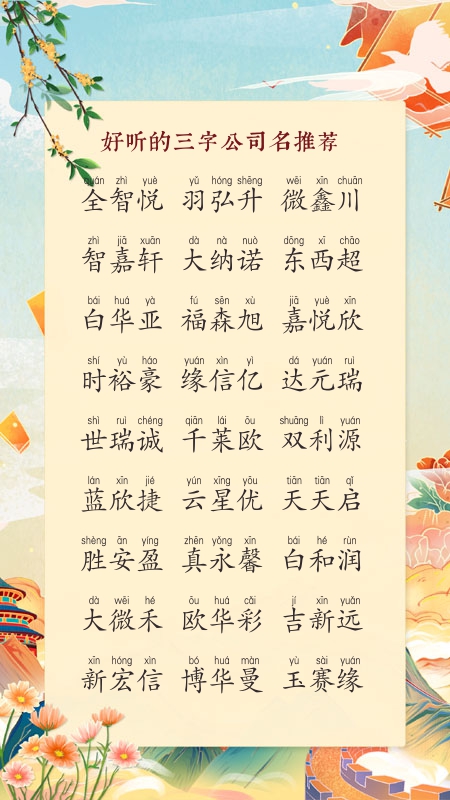 好听的三字公司名推荐
quán zhì yuè yǔ hóng shēng wēi xīn chuān
全智悦 羽弘升 微鑫川
zhì jiā xuān dà nà nuò dōng xī chāo
智嘉轩 大纳诺 东西超
bái huá yà fú sēn xù jiā yuè xīn
白华亚 福森旭 嘉悦欣
shí yù háo yuán xìn yì dá yuán ruì
时裕豪 缘信亿 达元瑞
shì ruì chéng qiān lái ōu shuāng lì yuán
世瑞诚 千莱欧 双利源
lán xīn jié yún xīng yōu tiān tiān qǐ
蓝欣捷 云星优 天天启
shèng ān yíng zhēn yǒng xīn bái hé rùn
胜安盈 真永馨 白和润
dà wēi hé ōu huá cǎi jí xīn yuǎn
大微禾 欧华彩 吉新远
xīn hóng xìn bó huá màn yù sài yuán
新宏信 博华曼 玉赛缘